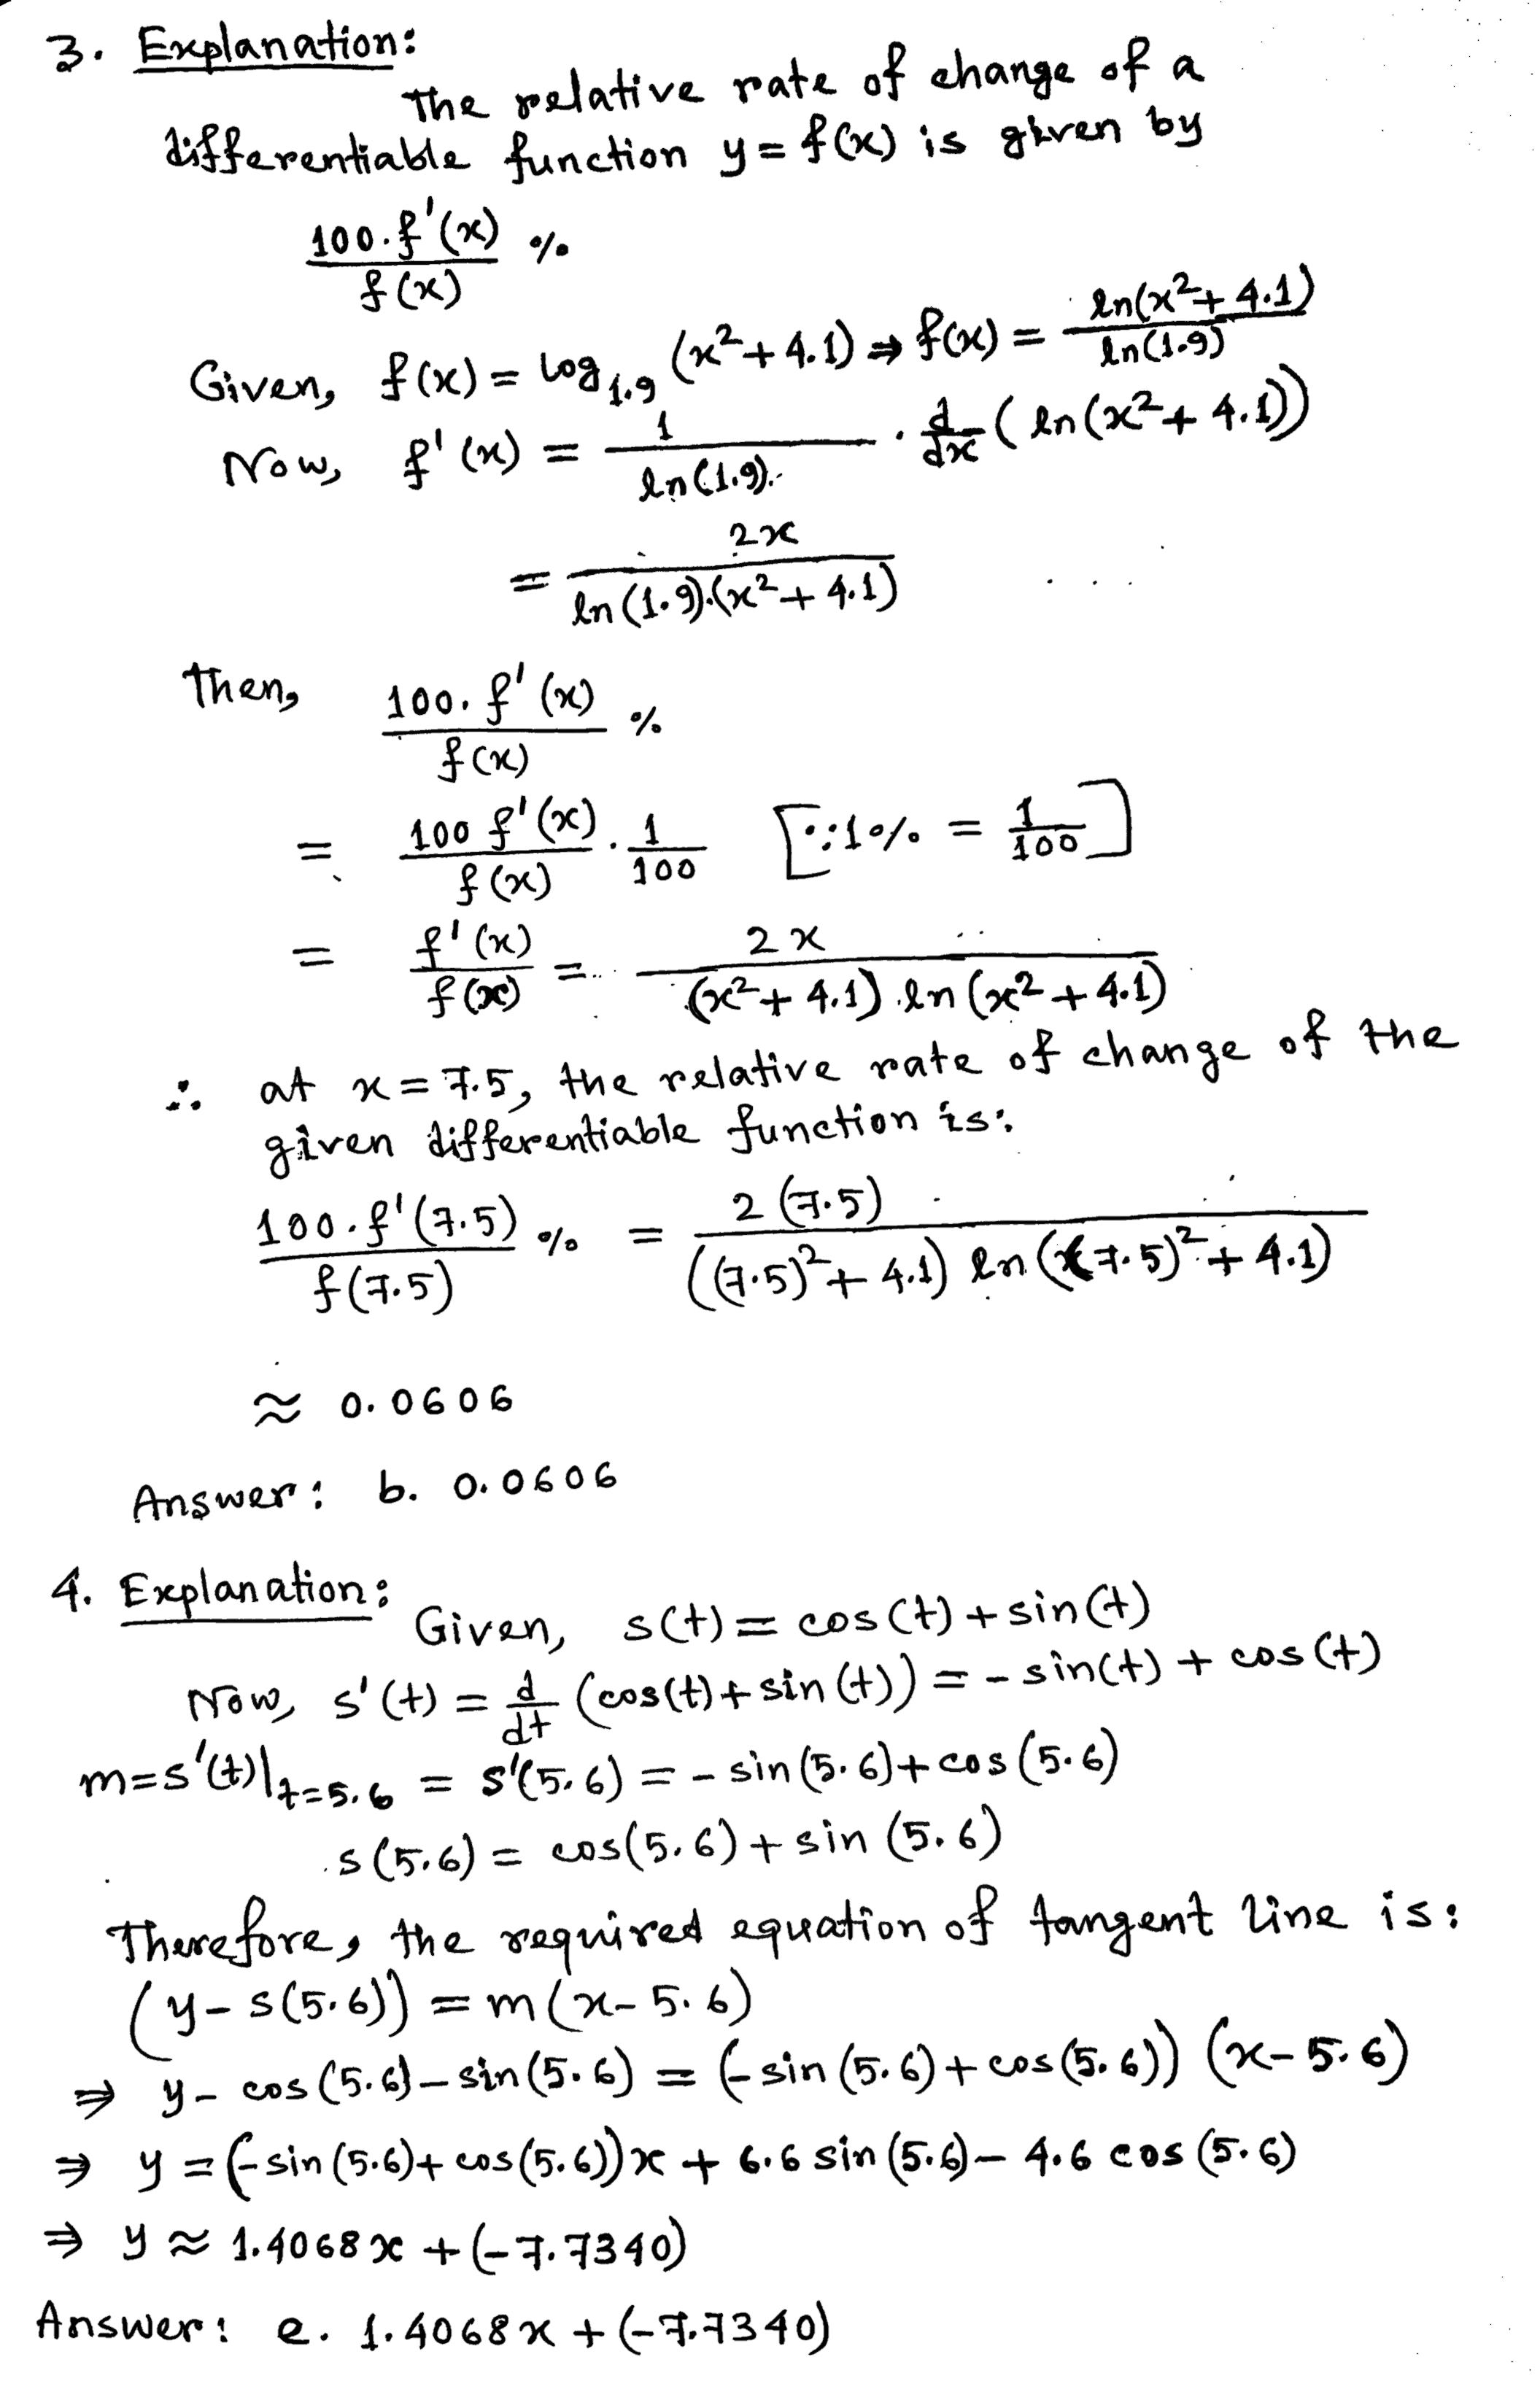 3. Explanation:
The relative rate of change of a
differentiable function y = f(x) is given by
100.f'(x)/f(x) %
Given, f(x) = log_1.9 (x²+4.1) ⇒ f(x) = ln(x²+4.1)/ln(1.9)
Now, f'(x) = 1/ln(1.9). · d/dx (ln(x²+4.1))
= 2x/ln(1.9).(x²+4.1)
Then, 100. f'(x)/f(x) %
= 100 f'(x)/f(x) · 1/100 [∵ 1% = 1/100]
= f'(x)/f(x) = 2x/(x²+4.1).ln(x²+4.1)
∴ at x = 7.5, the relative rate of change of the
given differentiable function is:
100.f'(7.5)/f(7.5) % = 2(7.5)/((7.5)²+4.1) ln((7.5)²+4.1)
≈ 0.0606
Answer: b. 0.0606
4. Explanation:
Given, s(t) = cos(t) + sin(t)
Now, s'(t) = d/dt (cos(t)+sin(t)) = -sin(t) + cos(t)
m=s'(t)|t=5.6 = s'(5.6) = -sin(5.6)+cos(5.6)
s(5.6) = cos(5.6)+sin(5.6)
Therefore, the required equation of tangent line is:
(y-s(5.6)) = m(x-5.6)
⇒ y-cos(5.6)-sin(5.6) = (-sin(5.6)+cos(5.6)) (x-5.6)
⇒ y = (-sin(5.6)+cos(5.6))x + 6.6 sin(5.6) - 4.6 cos(5.6)
⇒ y ≈ 1.4068x + (-7.7340)
Answer: e. 1.4068x + (-7.7340)